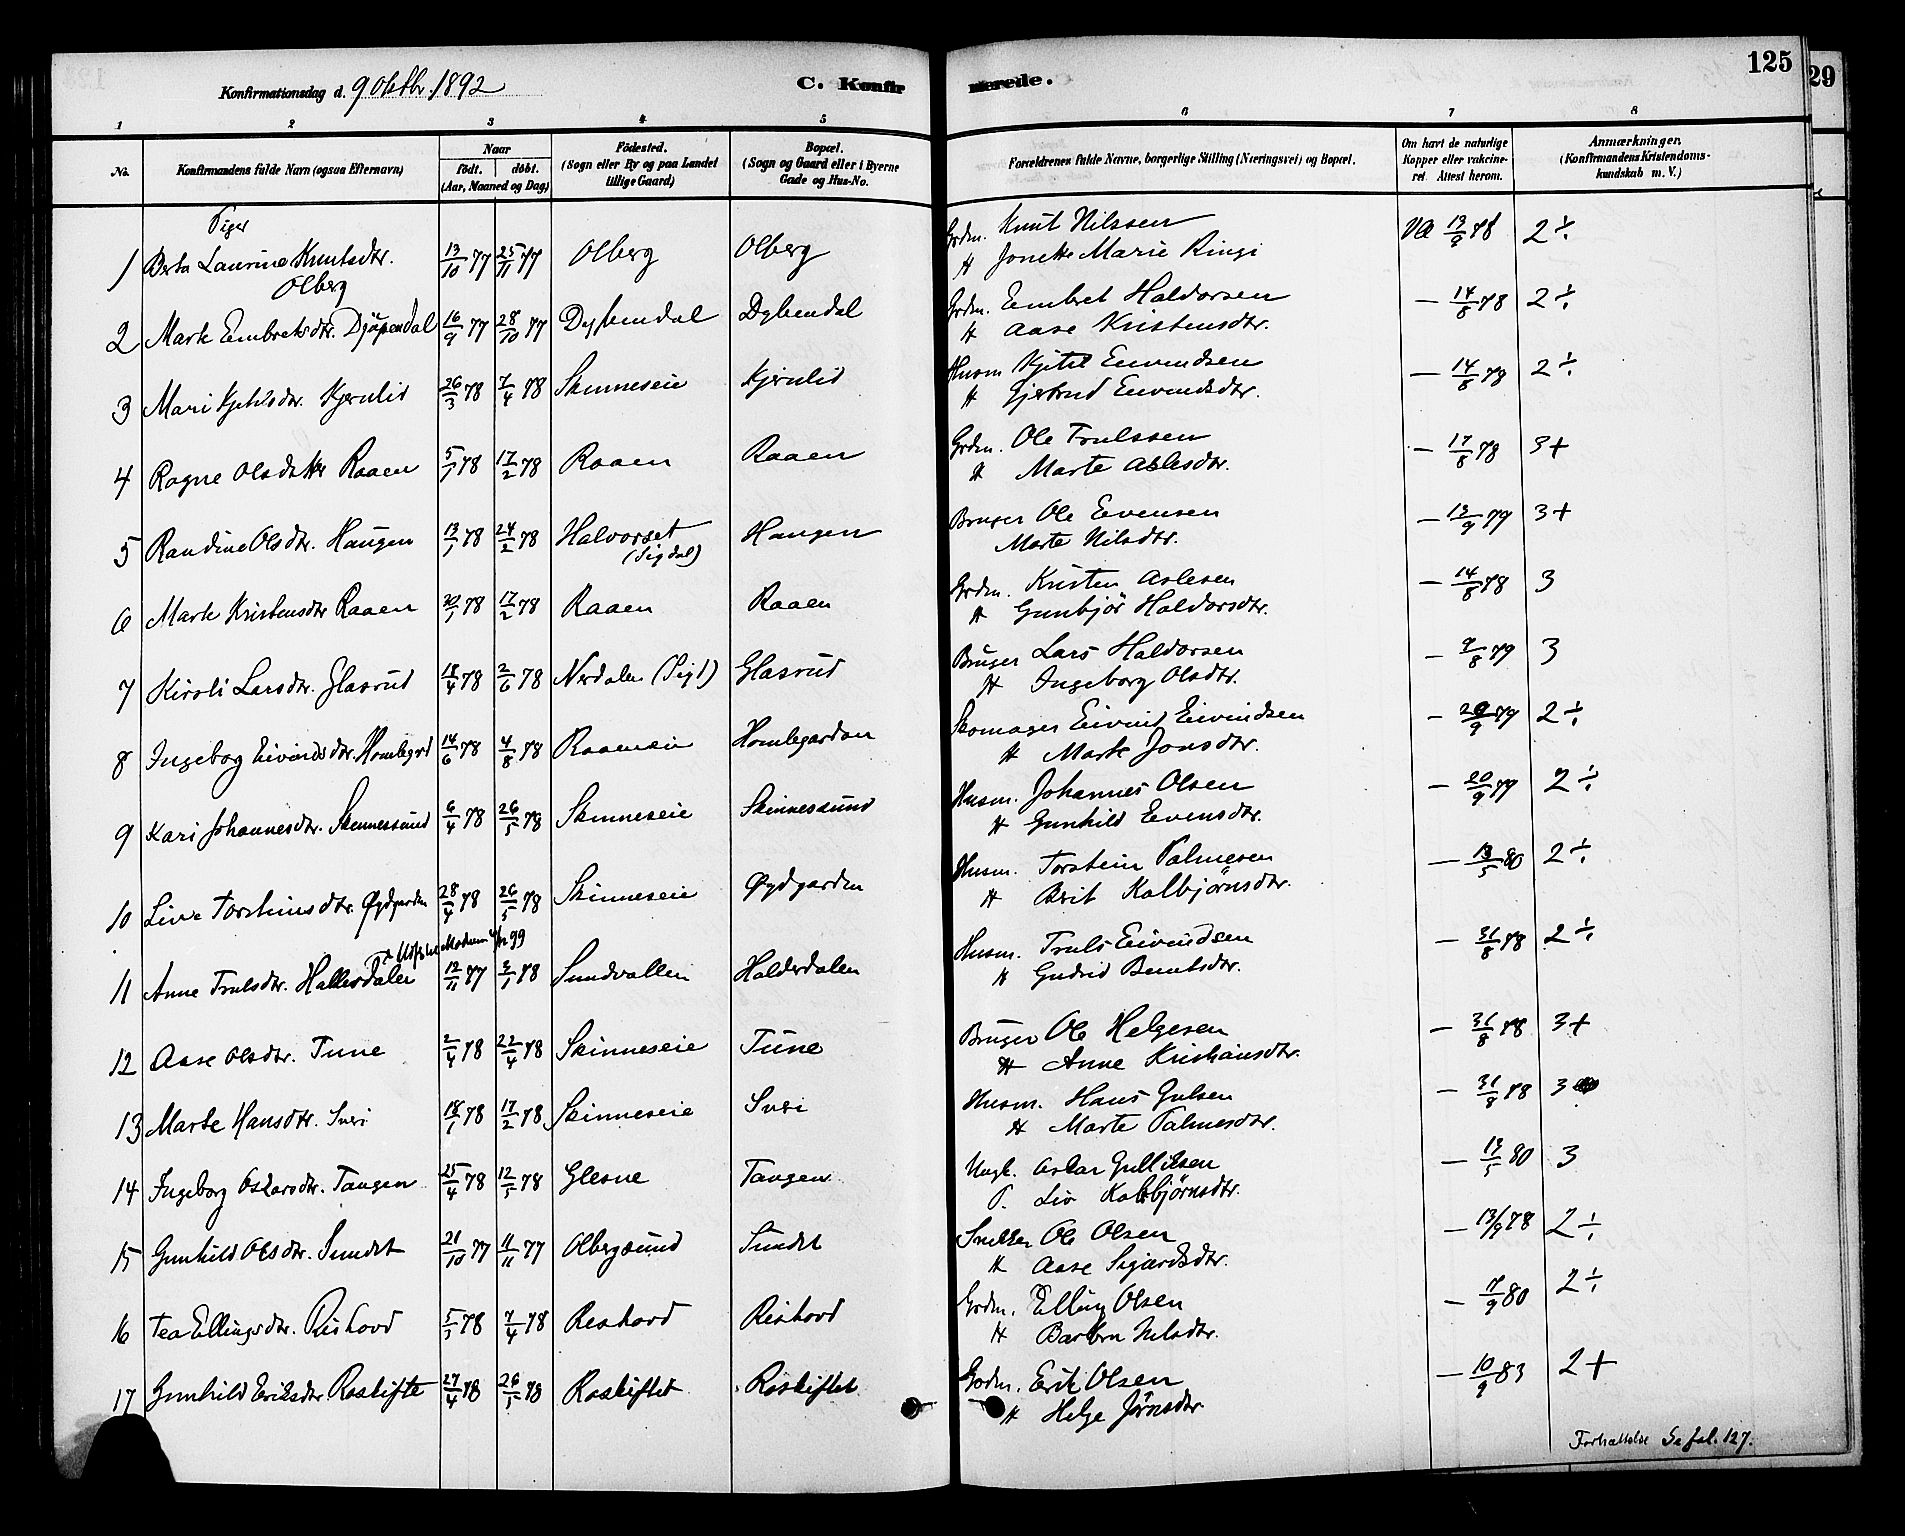 125
29
Konfirmationsdag d. 9 Oktbr. 1892
C. Konfirmerede.
1 2 3 4 5 6 7 8
No.
Konfirmandens fulde Navn (ogsaa Efternavn)
Naar
født. døbt.
(Aar, Maaned og Dag)
Fødested.
(Sogn eller By og paa Landet
tillige Gaard)
Bopæl.
(Sogn og Gaard eller i Byerne
Gade og Hus-No.
Forældrenes fulde Navne, borgerlige Stilling (Næringsvei) og Bopæl.
Om havt de naturlige
Kopper eller vakcine-
ret. Attest herom.
Anmærkninger.
(Konfirmandens Kristendoms-
kundskab m. V.)
Piger
1 Berta Laurine Knutsdtr. Olberg 13/10 77 25/11 77 Olberg Olberg Grdm. Knut Nilssen
H Jonette Marie Ringi Va 13/9 78 2 ÷
2 Marte Embretsdtr. Djupendal 16/9 77 28/10 77 Dybendal Dybendal Grdm. Embret Haldorsen
H Aase Kristensdtr. — 14/8 78 2 ÷
3 Mari Kjetilsdtr. Kjernlid 26/3 78 7/4 78 Skinneseie Kjernlid Husm Kjetil Eivindsen
H Gjertrud Eivindsdtr. — 14/8 78 2 ÷
4 Ragne Olsdatter Raaen 5/1 78 17/2 78 Raaen Raaen Grdm. Ole Trulssen
H Marte Aslesdtr. — 17/8 78 3+
5 Randine Olsdtr. Haugen 13/1 78 24/2 78 Halvorset (Sigdal) Haugen Bruger Ole Evensen
Marte Nilsdtr. — 13/9 79 3+
6 Marte Kristensdtr Raaen 20/1 78 17/2 78 Raaen Raaen Grdm. Kristen Aslesen
H Gunbjør Haldorsdtr. — 14/8 78 3
7 Kirsti Larsdtr. Glasrud 18/4 78 2/6 78 Nerdalen (Sigd) Glasrud Bruger Lars Haldorsen
H Ingeborg Olsdtr. — 9/8 79 3
8 Ingebog Eivindsdtr. Homlegrd 14/6 78 4/8 78 Raaeneie Homlegarden Skomager Eivind Eivindsen
H Marte Jonsdtr. — 20/9 79 2 ÷
9 Kari Johannesdtr. Skinnessund 6/4 78 26/5 78 Skinneseie Skinnessund Husm. Johannes Olsen
H Gunhild Evensdtr. — 20/9 79 2 ÷
10 Live Torsteinsdtr. Øydgarden 28/4 78 26/5 78 Skinneseie Øydgarden Husm. Torstein Palmesen
H Brit Kolbjørnsdtr. — 13/5 80 2 ÷
11 Anne Trulsdtr. Hallesdalen 12/11 77 Sundvollen Halderdalen Husm. Truls Eivindsen
H Gudrid Berntsdtr. — 31/8 78 2 ÷
12 Aase Olsdtr. Tune 2/4 78 22/4 78 Skinneseie Tune Bruger Ole Helgesen
H Anne Kristiansdtr. — 31/8 78 3+
13 Marte Hansdtr. Sveri 18/1 78 17/2 78 Skinneseie Sveri Husm. Hans Gulsen
H Marte Palmesdtr. — 31/8 78 3
14 Ingeborg Oskarsdtr. Tangen 25/4 78 12/5 78 Glesne Tangen Ungk. Oskar Gulliksen
P. Liv Kolbjørnsdtr. — 13/5 80 3
15 Gunhild Olsdtr. Sundet 21/10 77 11/11 77 Olbergsund Sundet Snekker Ole Olsen
H Aase Sigurdsdtr. — 13/9 78 2 ÷
16 Tea Ellingsdtr. Rishovd 5/3 78 7/4 78 Rishovd Rishovd Grdm. Elling Olsen
H Barbro Nilsdtr. — 7/9 80 2 ÷
17 Gunhild Eriksdtr Roskifte 27/4 78 26/5 78 Roskiftet Roskiftet Grdm. Erik Olsen
H Helge Jørnsdtr. — 10/9 83 2 +
Forhattelse Se fol. 127.